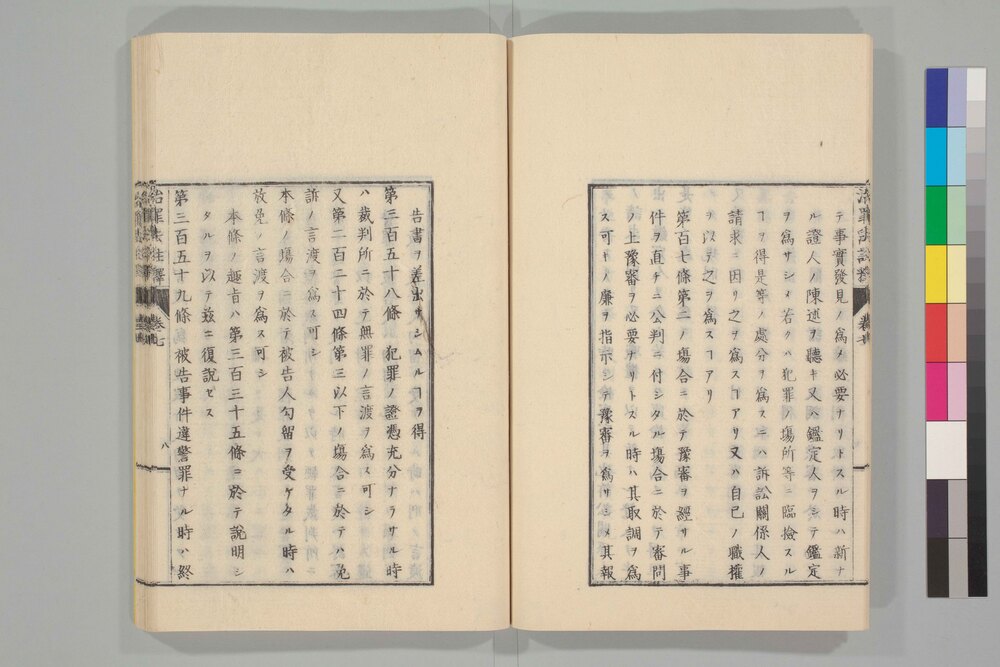 テ事實發見ノ爲メ必要ナリトスル時ハ新ナ
ル證人ノ陳述ヲ聽キ又ハ鑑定人ヲシテ鑑定
ヲ爲サシメ若クハ犯罪ノ塲所等ニ臨撿スル
ヿヲ得是等ノ處分ヲ爲スニハ訴訟關係人ノ
請求ニ因リ之ヲ爲スヿアリ又ハ自己ノ職權
ヲ以テ之ヲ爲スヿアリ
第百七條第二ノ塲合ニ於テ豫審ヲ經サル事
件ヲ直チニ公判ニ付シタル塲合ニ於テ審問
ノ上豫審ヲ必要ナリトスル時ハ其取調ヲ爲
ス可キ廉ヲ指示シテ豫審ヲ爲サシメ其報
告書ヲ差出サシムルヿヲ得
第三百五十八條 犯罪ノ證憑充分ナラサル時
ハ裁判所ニ於テ無罪ノ言渡ヲ爲ス可シ
又第二百二十四條第三以下ノ塲合ニ於テハ免
訴ノ言渡ヲ爲ス可シ
本條ノ塲合ニ於テ被告人勾留ヲ受ケタル時ハ
放免ノ言渡ヲ爲ス可シ
本條ノ趣旨ハ第三百三十五條ニ於テ説明シ
タルヲ以テ茲ニ復説セス
第三百五十九條 被告事件違警罪ナル時ハ終
治罪法註釋 卷七 八